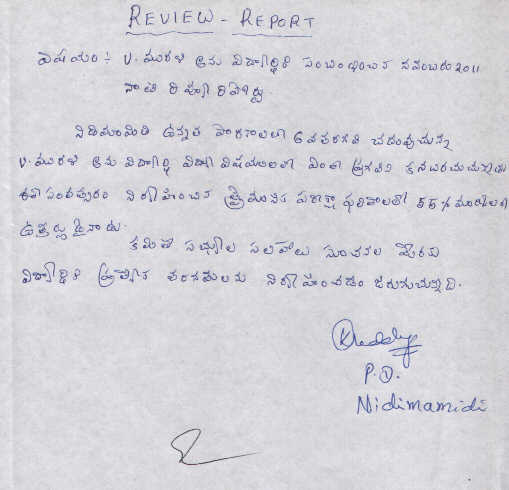 REVIEW - REPORT
విషయం :- V. మురళి అను విద్యార్థికి సంబంధించిన నవంబరు 2011
నాటి రివ్యూ రిపోర్టు.
నిడిమామిడి ఉన్నత పాఠశాలలో 6వ తరగతి చదువుచున్న
V. మురళి అను విద్యార్థి విద్యా విషయాలలో ఎంతో ప్రగతిని కనబరచుచున్నాడు
ఈ సంవత్సరం నిర్వహించిన త్రైమాసిక పరీక్షా ఫలితాలలో మార్కులతో
ఉత్తీర్ణుడైనాడు.
కమిటి సభ్యుల సలహాలు సూచనల మేరకు
విద్యార్థికి ప్రత్యేక తరగతులను నిర్వహించడం జరుగుచున్నది.
KReddy
P.D.
Nidimamidi